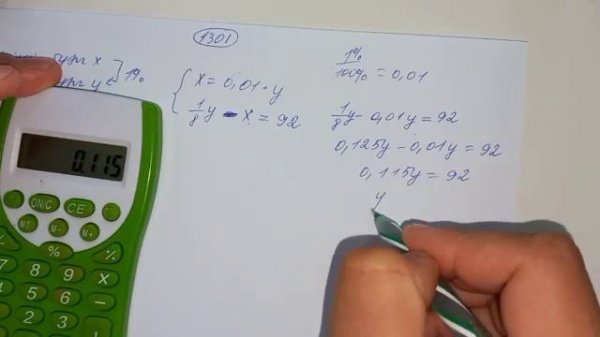 1301
x
y
1%
x = 0,01·y
1/8 y - x = 92
1%/100% = 0,01
1/8 y - 0,01y = 92
0,125y - 0,01y = 92
0,115y = 92
y
0.115
ON/C CE
M- M+
%
7 8 9 ×
4 5 6
1 2 3